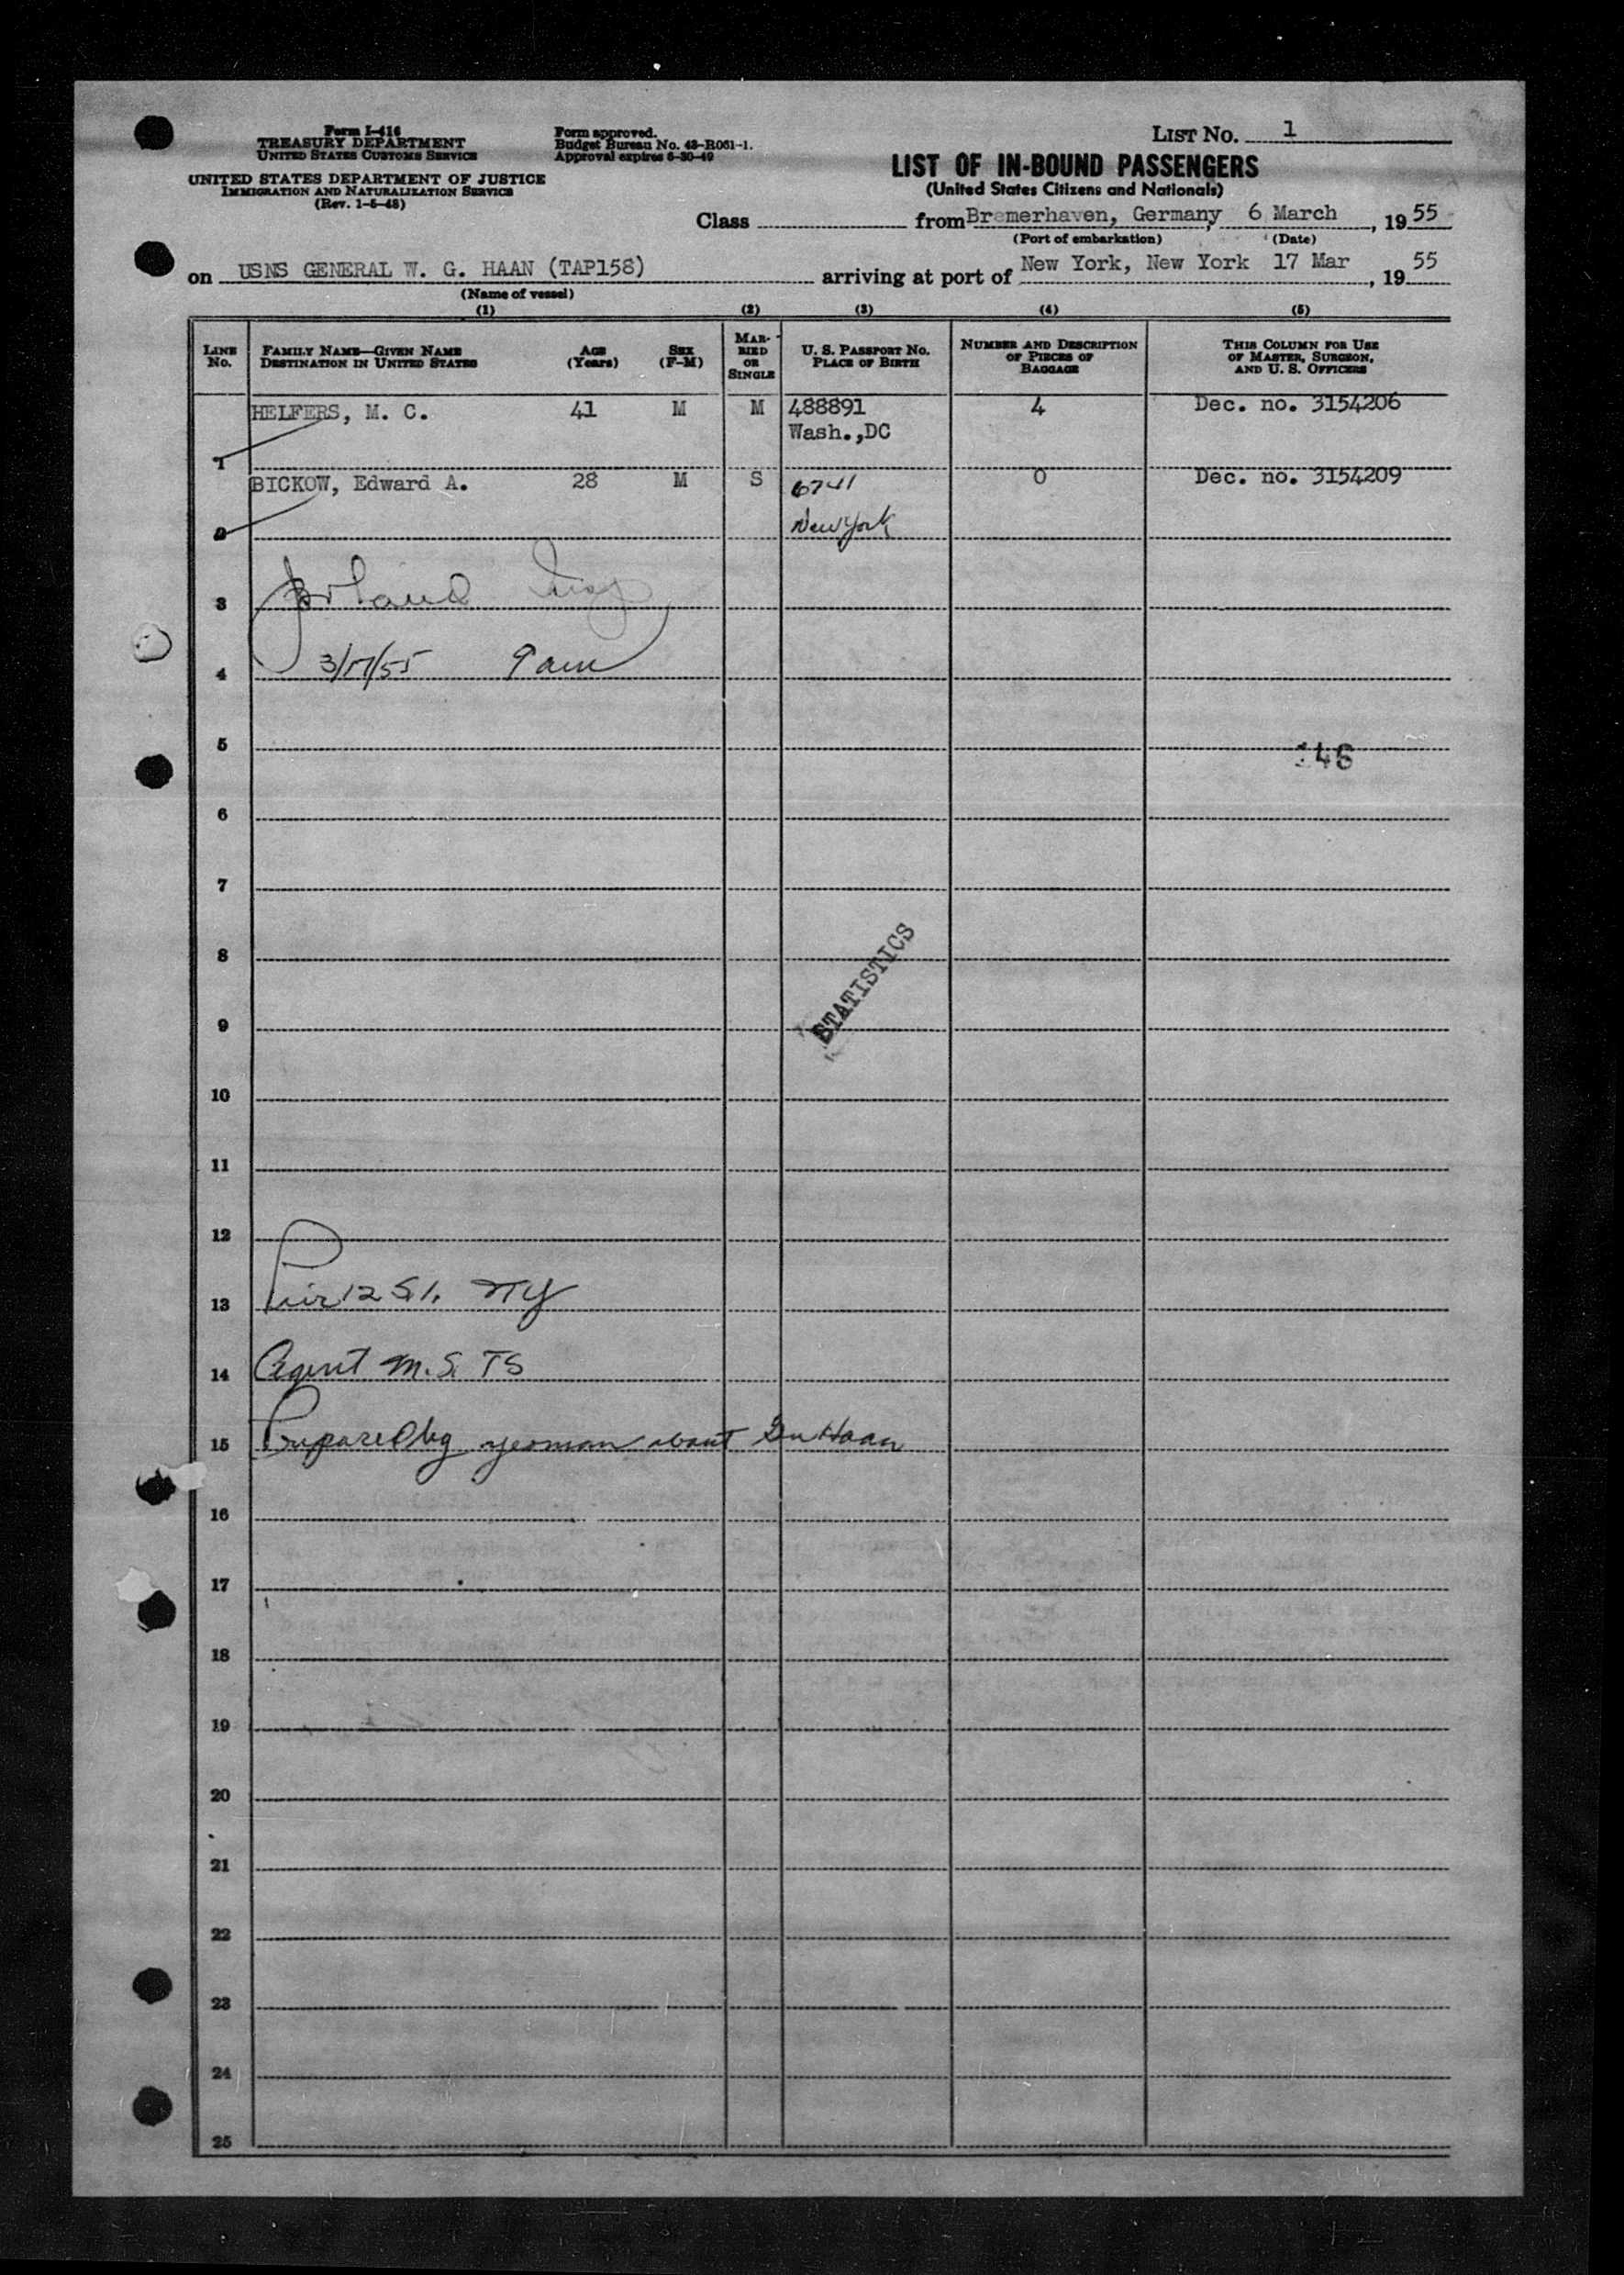 Form I-416
TREASURY DEPARTMENT
UNITED STATES CUSTOMS SERVICE
UNITED STATES DEPARTMENT OF JUSTICE
IMMIGRATION AND NATURALIZATION SERVICE
(Rev. 1-5-48)
Form approved.
Budget Bureau No. 43-R061-1.
Approval expires 6-30-49
LIST NO. 1
LIST OF IN-BOUND PASSENGERS
(United States Citizens and Nationals)
Class from Bremerhaven, Germany, 6 March, 19 55
(Port of embarkation) (Date)
on USNS GENERAL W. G. HAAN (TAP158) arriving at port of New York, New York 17 Mar, 19 55
(Name of vessel)
(1) (2) (3) (4) (5)
LINE NO. FAMILY NAME—GIVEN NAME DESTINATION IN UNITED STATES AGE (Years) SEX (F-M) MARRIED OR SINGLE U. S. PASSPORT NO. PLACE OF BIRTH NUMBER AND DESCRIPTION OF PIECES OF BAGGAGE THIS COLUMN FOR USE OF MASTER, SURGEON, AND U. S. OFFICERS
HELFERS, M. C. 41 M M 488891 4 Dec. no. 3154206
Wash.,DC
1
BICKOW, Edward A. 28 M S 6741 0 Dec. no. 3154209
New York
2
3
3/17/55 9 am
4
5
146
6
7
8
STATISTICS
9
10
11
12
13 Pier 12 S.I. NY
14 Agent M.S.TS
15 Prepared by yeoman aboat Gen Haan
16
17
18
19
20
21
22
23
24
25